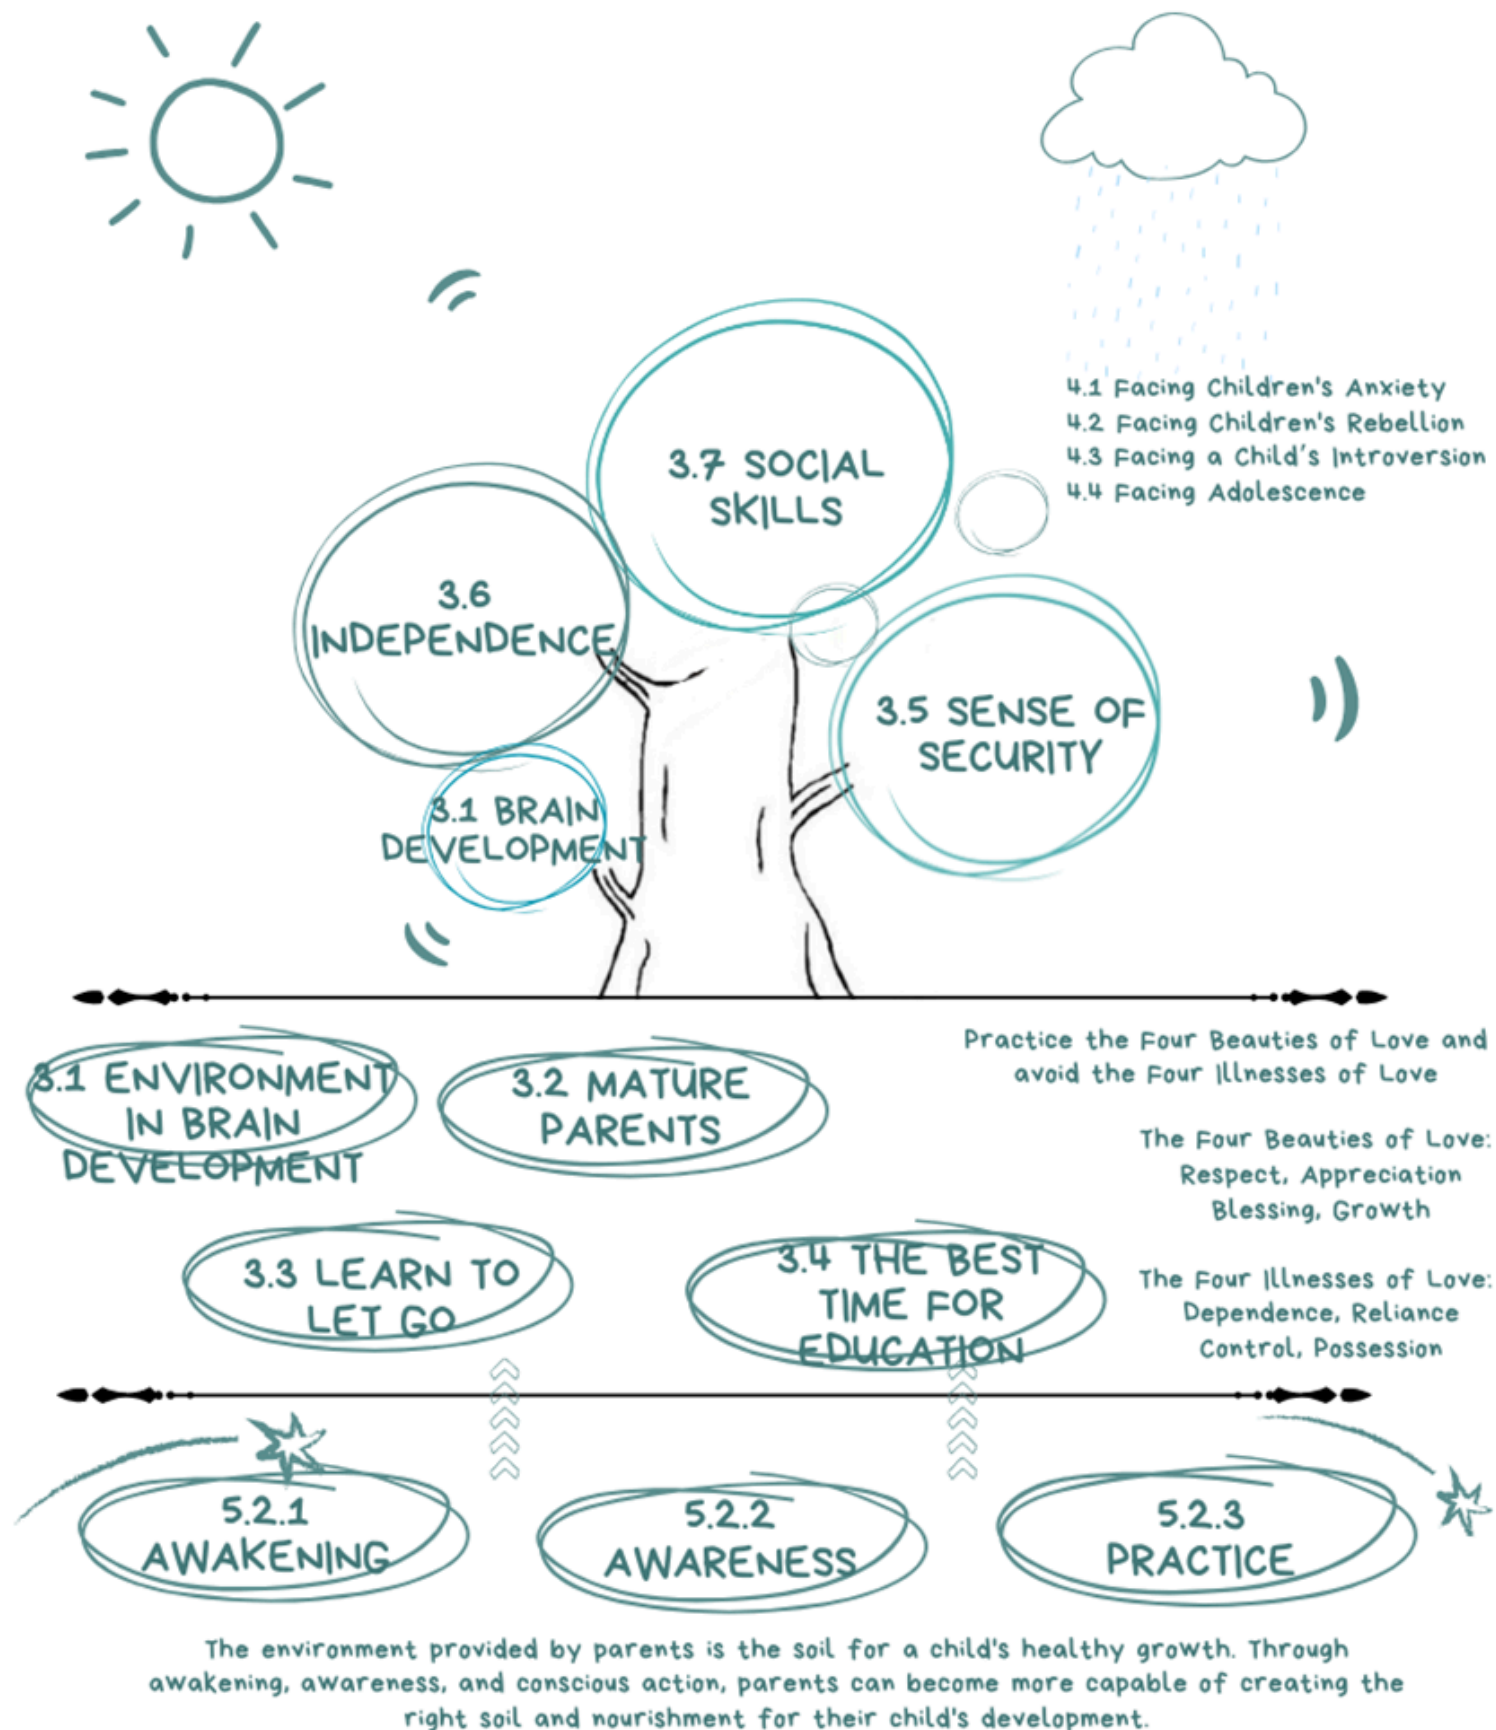 4.1 Facing Children's Anxiety
4.2 Facing Children's Rebellion
4.3 Facing a Child's Introversion
4.4 Facing Adolescence
3.7 SOCIAL
SKILLS
3.6
INDEPENDENCE
3.5 SENSE OF
SECURITY
3.1 BRAIN
DEVELOPMENT
3.1 ENVIRONMENT
IN BRAIN
DEVELOPMENT
3.2 MATURE
PARENTS
Practice the Four Beauties of Love and
avoid the Four Illnesses of Love
The Four Beauties of Love:
Respect, Appreciation
Blessing, Growth
3.3 LEARN TO
LET GO
3.4 THE BEST
TIME FOR
EDUCATION
The Four Illnesses of Love:
Dependence, Reliance
Control, Possession
5.2.1
AWAKENING
5.2.2
AWARENESS
5.2.3
PRACTICE
The environment provided by parents is the soil for a child's healthy growth. Through
awakening, awareness, and conscious action, parents can become more capable of creating the
right soil and nourishment for their child's development.